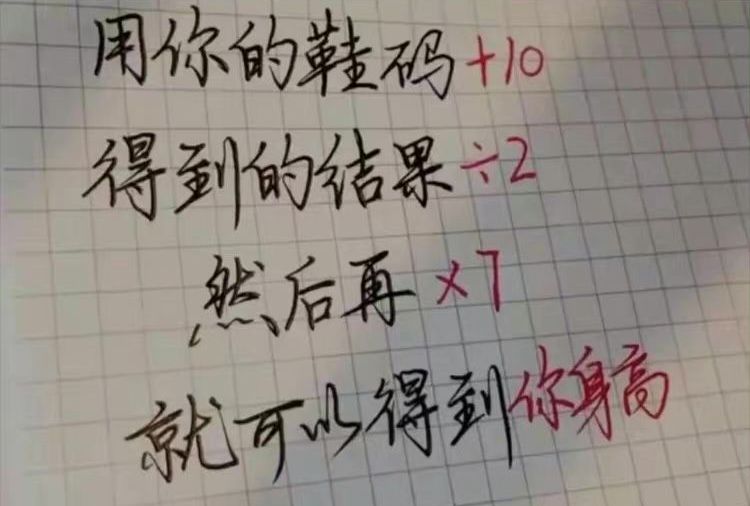 用你的鞋码+10
得到的结果÷2
然后再×7
就可以得到你身高